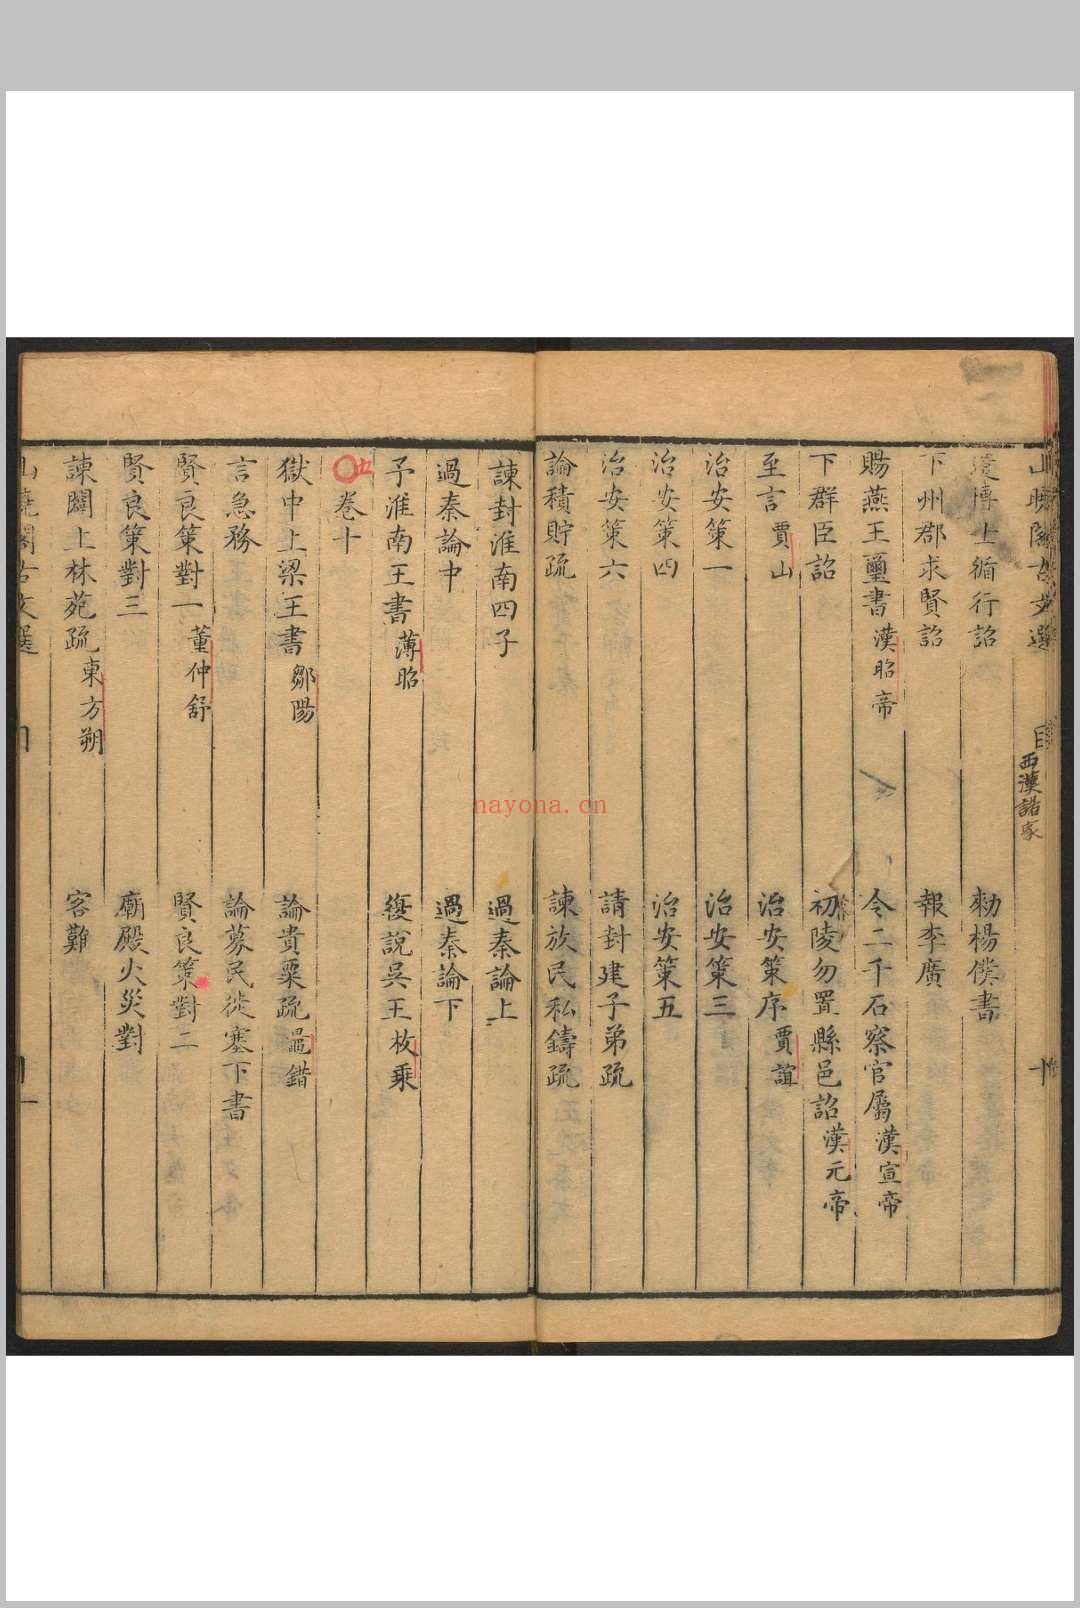 山曉閣古文選 目 西漢諸家 十
遣博士循行詔 勑楊僕書
下州郡求賢詔 報李廣
賜燕王璽書 漢昭帝 令二千石察官屬 漢宣帝
下群臣詔 初陵勿置縣邑詔 漢元帝
至言 賈山 治安策序 賈誼
治安策一 治安策三
治安策四 治安策五
治安策六 請封建子弟疏
論積貯疏 諫放民私鑄疏
諫封淮南四子 過秦論上
過秦論中 過秦論下
予淮南王書 薄昭 復說吳王 枚乘
五 卷十
獄中上梁王書 鄒陽 論貴粟疏 鼂錯
言急務 論募民徙塞下書
賢良策對一 董仲舒 賢良策對二
賢良策對三 廟殿火災對
諫闢上林苑疏 東方朔 客難
山曉閣古文選
nayona.cn